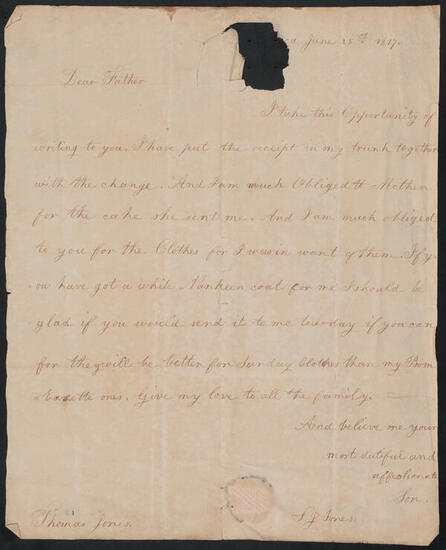 June 25th 1817.
Dear Father
I take this Opportunity of
writing to you. I have put the receipt in my trunk together
with the change. And I am much Obliged to Mother
for the cake she sent me. And I am much obliged
to you for the Clothes for I was in want of them. If y-
ou have got a white Nankeen coat for me I should be
glad if you would send it to me tuesday if you can
for they will be better for Sunday Clothes than my Bom-
bazette ones. Give my love to all the family.
And believe me your
most dutiful and
affectionate
Son.
Thomas Jones. Jones.